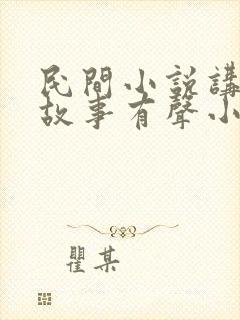 民間小說講
故事有聲小
瞿某